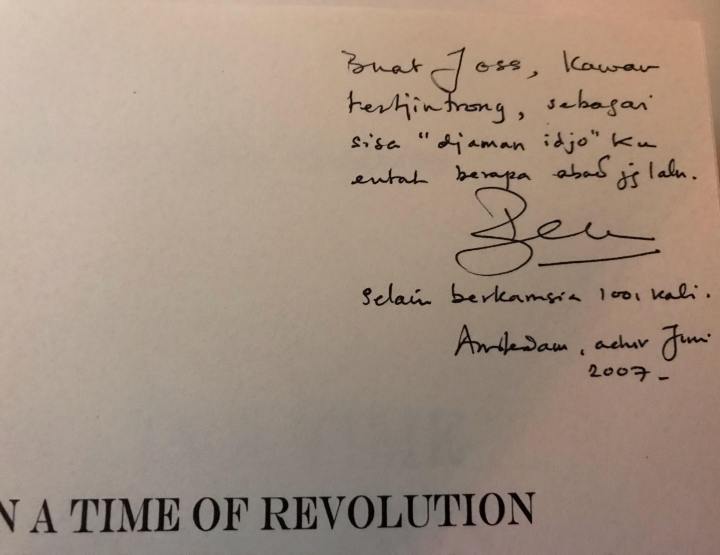 Buat Joss, Kawan
tertjintrong, sebagai
sisa "djaman idjo" Ku
entah berapa abad jg lalu.
Ben
Selain berkamsia 1001 kali.
Amsterdam, achir Juni
2007-
N A TIME OF REVOLUTION